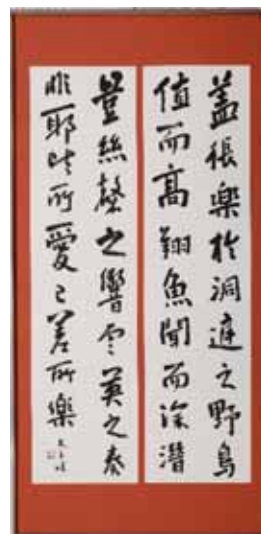 蓋張樂於洞庭之野鳥
值而高翔魚聞而深潛
豈絲磬之響雲英之奏
非耶此所愛已差所樂